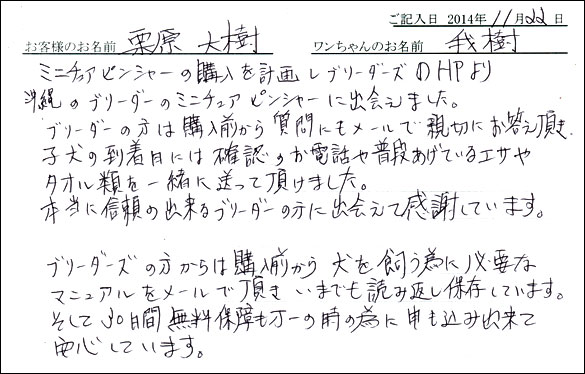 ご記入日 2014年11月22日
お客様のお名前 栗原 大樹 ワンちゃんのお名前 我樹
ミニチュアピンシャーの購入を計画しブリーダーズのHPより
沖縄のブリーダーのミニチュアピンシャーに出会えました。
ブリーダーの方は購入前から質問にもメールで親切にお答え頂き
子犬の到着日には確認のお電話や普段あげているエサや
タオル類を一緒に送って頂けました。
本当に信頼の出来るブリーダーの方に出会えて感謝しています。
ブリーダーズの方からは購入前から犬を飼う為に必要な
マニュアルをメールで頂き いまでも読み返し保存しています。
そして30日間無料保障も万一の時の為に申し込み出来て
安心しています。